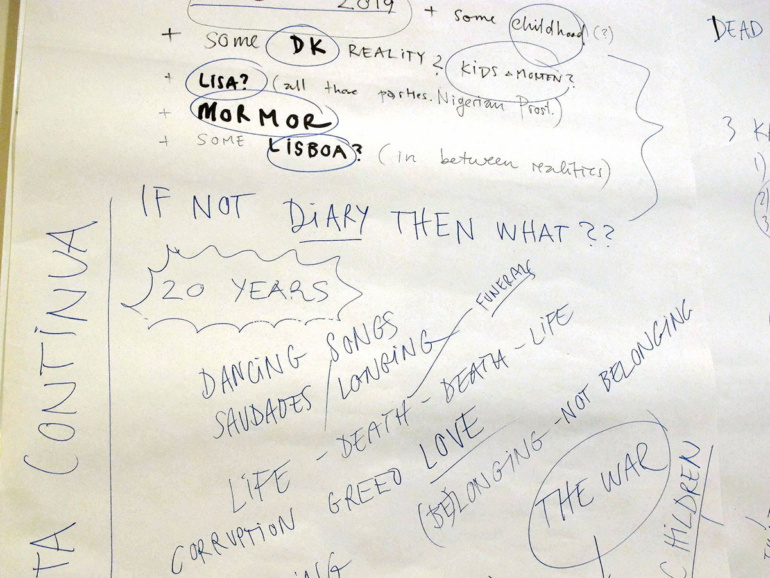 2019
+ some childhood (?)
+ some DK REALITY? KIDS & MORTEN?
+ LISA? (all those parties. Nigerian Prost.)
+ MORMOR
+ SOME LISBOA? (in between realities)
IF NOT DIARY THEN WHAT??
20 YEARS
DANCING SONGS
SAUDADES / LONGING
FUNERALS
LIFE - DEATH - DEATH - LIFE
CORRUPTION GREED LOVE
(BE)LONGING - NOT BELONGING
THE WAR
CHILDREN
TA CONTINUA
DEAD
1)
2)
3